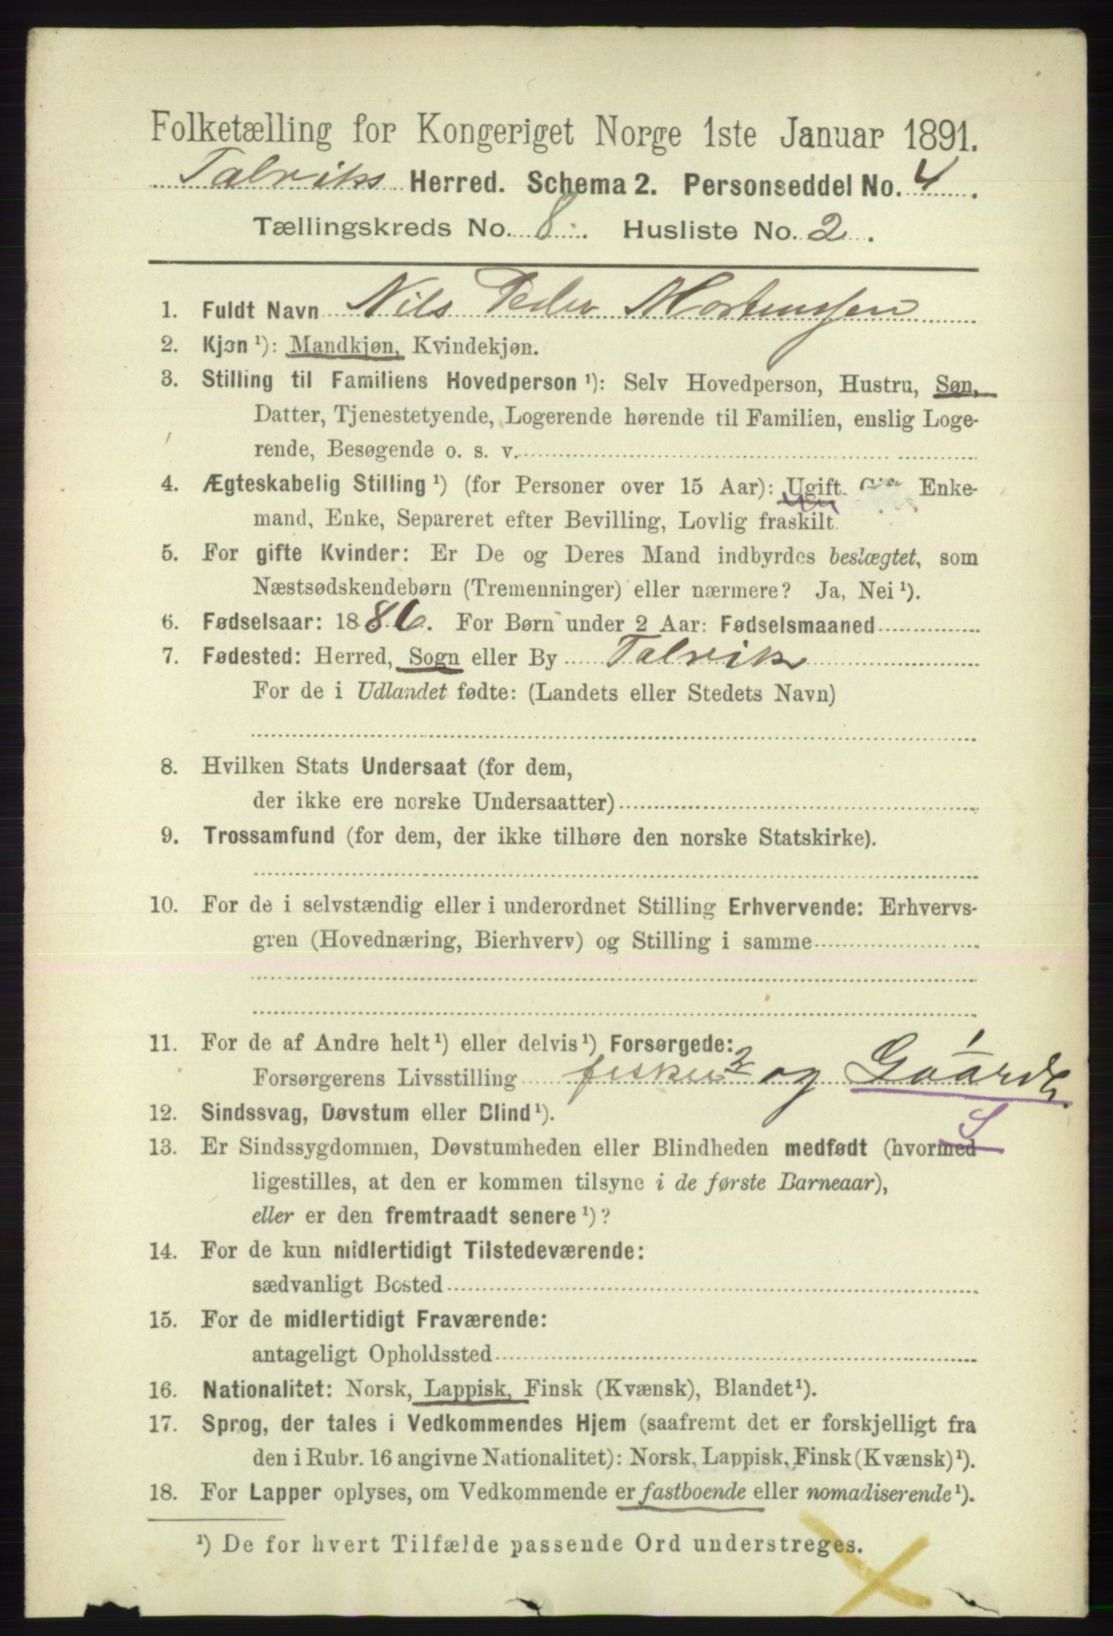 Folketælling for Kongeriget Norge 1ste Januar 1891.
Talviks Herred. Schema 2. Personseddel No. 4.
Tællingskreds No. 8. Husliste No. 2.
1. Fuldt Navn Nils Peder Mortensen
2. Kjøn ¹): Mandkjøn, Kvindekjøn.
3. Stilling til Familiens Hovedperson ¹): Selv Hovedperson, Hustru, Søn,
Datter, Tjenestetyende, Logerende hørende til Familien, enslig Loge-
rende, Besøgende o. s. v.
4. Ægteskabelig Stilling ¹) (for Personer over 15 Aar): Ugift, Enke-
mand, Enke, Separeret efter Bevilling, Lovlig fraskilt.
5. For gifte Kvinder: Er De og Deres Mand indbyrdes beslægtet, som
Næstsødskendebørn (Tremenninger) eller nærmere? Ja, Nei ¹).
6. Fødselsaar: 1886. For Børn under 2 Aar: Fødselsmaaned
7. Fødested: Herred, Sogn eller By Talvik
For de i Udlandet fødte: (Landets eller Stedets Navn)
8. Hvilken Stats Undersaat (for dem,
der ikke ere norske Undersaatter)
9. Trossamfund (for dem, der ikke tilhøre den norske Statskirke).
10. For de i selvstændig eller i underordnet Stilling Erhvervende: Erhvervs-
gren (Hovednæring, Bierhverv) og Stilling i samme
11. For de af Andre helt ¹) eller delvis ¹) Forsørgede:
Forsørgerens Livsstilling fisker 2 og Gaardb. 1
S
12. Sindssvag, Døvstum eller Blind ¹).
13. Er Sindssygdommen, Døvstumheden eller Blindheden medfødt (hvormed
ligestilles, at den er kommen tilsyne i de første Barneaar),
eller er den fremtraadt senere ¹)?
14. For de kun midlertidigt Tilstedeværende:
sædvanligt Bosted
15. For de midlertidigt Fraværende:
antageligt Opholdssted
16. Nationalitet: Norsk, Lappisk, Finsk (Kvænsk), Blandet ¹).
17. Sprog, der tales i Vedkommendes Hjem (saafremt det er forskjelligt fra
den i Rubr. 16 angivne Nationalitet): Norsk, Lappisk, Finsk (Kvænsk) ¹).
18. For Lapper oplyses, om Vedkommende er fastboende eller nomadiserende ¹).
¹) De for hvert Tilfælde passende Ord understreges.